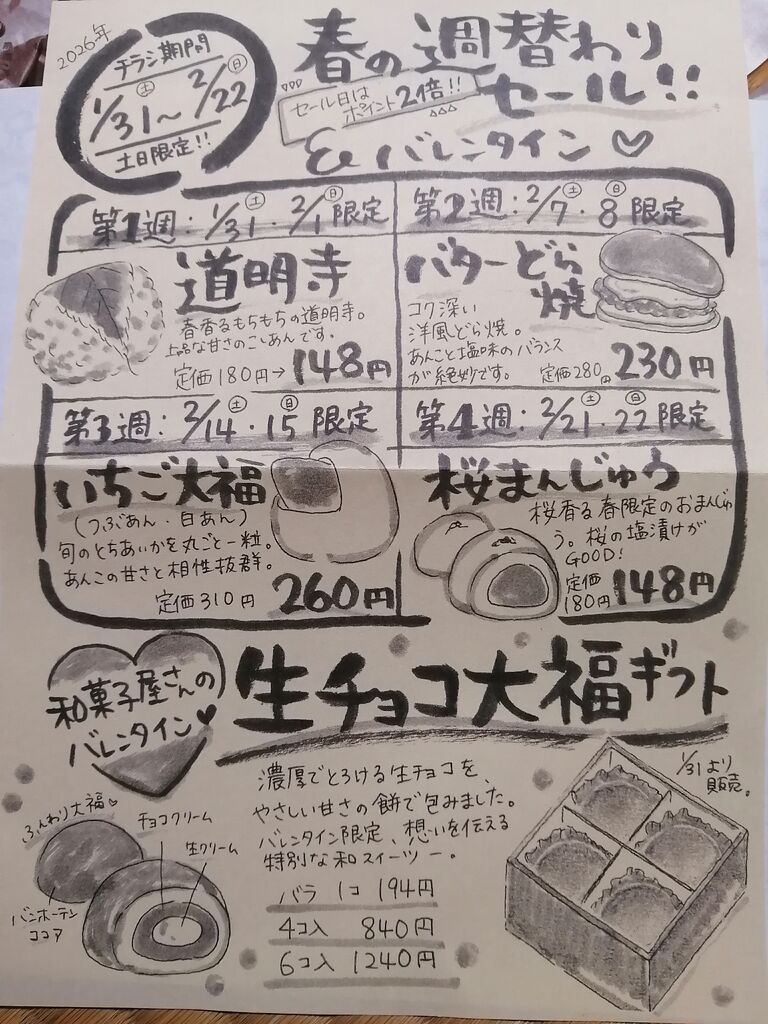 2026年
チラシ期間
1/31(土)～2/22(日)
土日限定!!
春の週替わり
セール!!
セール日は
ポイント2倍!!
& バレンタイン♡
第1週:1/31(土)・2/1(日)限定
道明寺
春香るもちもちの道明寺。
上品な甘さのこしあんです。
定価180円→148円
第2週:2/7(土)・8(日)限定
バターどら
焼
コク深い
洋風どら焼。
あんこと塩味のバランス
が絶妙です。
定価280円 230円
第3週:2/14(土)・15(日)限定
いちご大福
(つぶあん・白あん)
旬のとちあいかを丸ごと一粒。
あんこの甘さと相性抜群。
定価310円 260円
第4週:2/21(土)・22(日)限定
桜まんじゅう
桜香る春限定のおまんじゅ
う。桜の塩漬けが
GOOD!
定価
180円 148円
和菓子屋さんの
バレンタイン♥
生チョコ大福ギフト
1/31より
販売。
濃厚でとろける生チョコを、
やさしい甘さの餅で包みました。
バレンタイン限定、想いを伝える
特別な和スイーツー。
バラ 1コ 194円
4コ入 840円
6コ入 1240円
ふんわり大福♡
チョコクリーム
生クリーム
バンホーテン
ココア